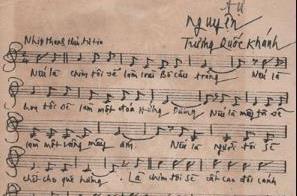 Tự
Nguyện
Trương Quốc Khánh
Nhịp
Nếu là chim tôi sẽ làm loài Bồ câu trắng Nếu là
hoa tôi sẽ làm một đóa Hướng Dương Nếu là mây tôi sẽ
làm một vầng mây ấm. Nếu là người tôi sẽ
chết cho quê hương. Là chim tôi sẽ cất cao đôi cánh